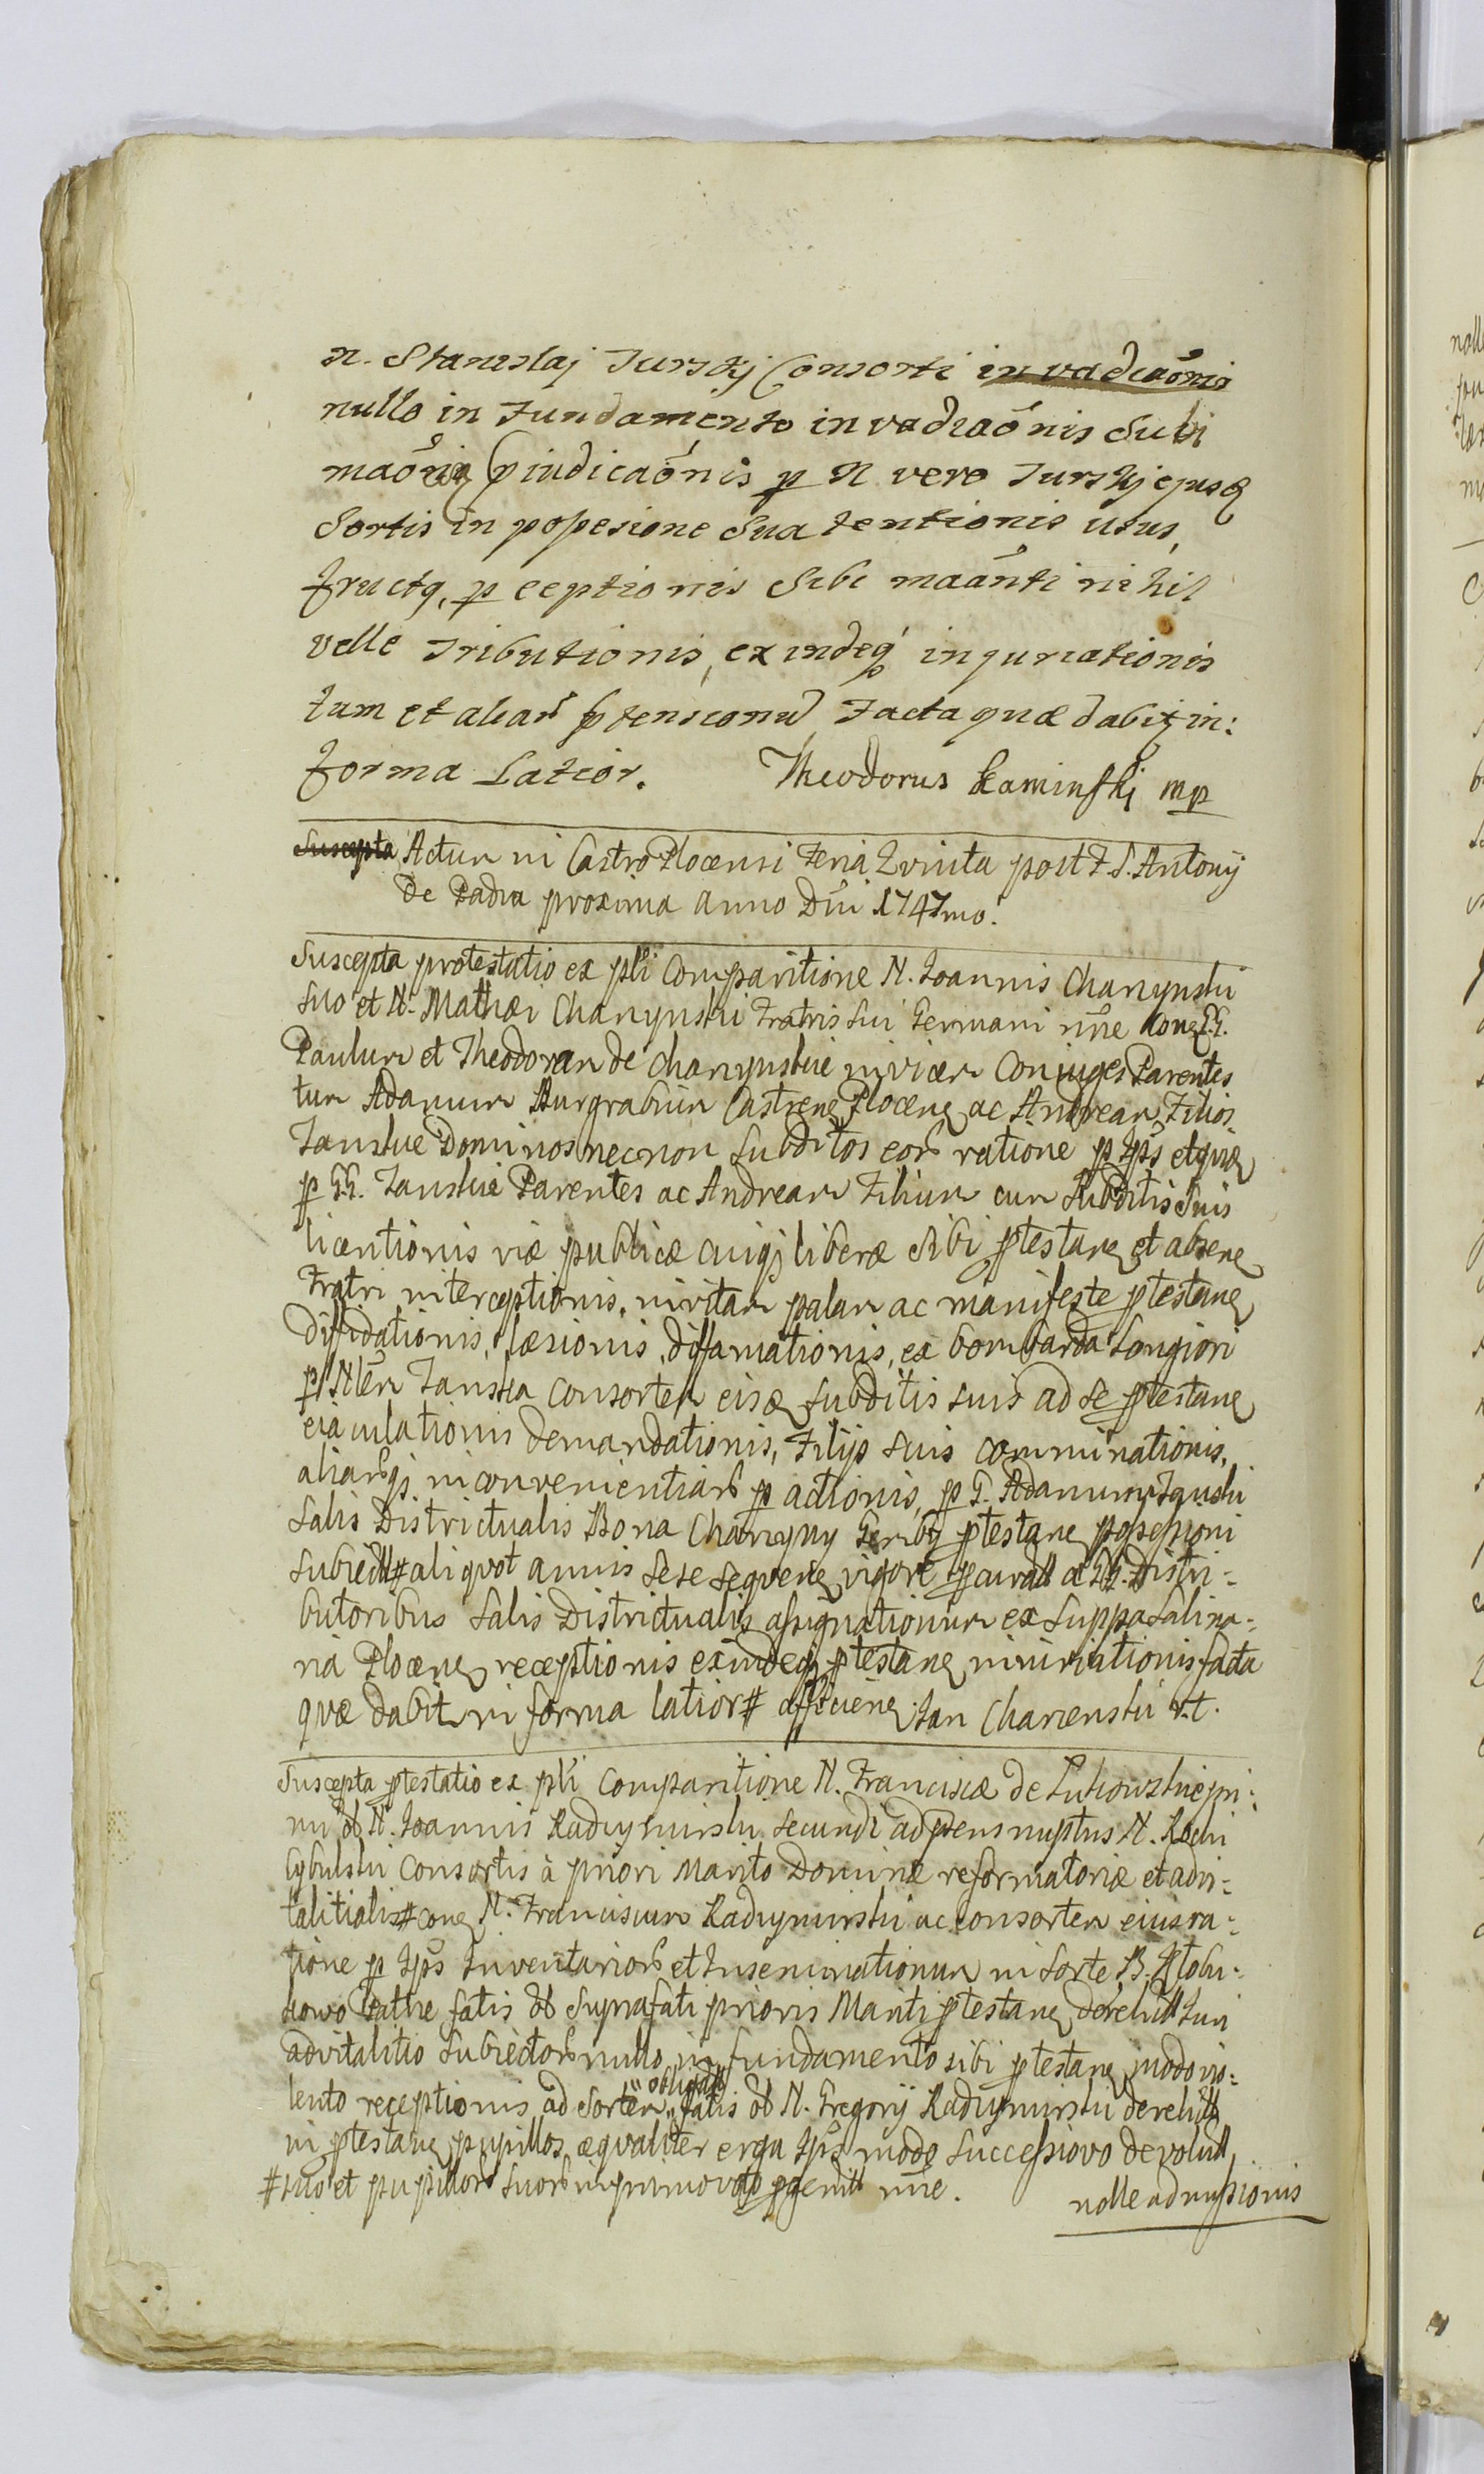 N. Stanislaj Jurskj Consorti in vadiaónis
nullo in Fundamento invadiaónis Subi
maónis piudicaónis p N vero Jurskj ejusq
Sortis in possesione Sua tentionis usus,
fructq, p ceptionis Sibi maánti nihil
velle Tributionis, ex indeq injuriationis
tam et aliar ptensionu Facta quæ dabit in:
forma Latior. Theodorus Kaminski mp
Suscepta Actum in Castro Plocensi Feria Qvinta post F. S. Antonij
de Padua proxima anno Dni 1747mo.
Suscepta protestatio ex pti Comparitione N. Joannis Charzynski
suo et N. Mathæi Charzynski Fratris sui Germani nne con G.G.
Paulum et Theodoram de Charzynskie invicem Conjuges Parentes
tum Adamum Burgrabium Castrene Plocene ac Andream Filios
Janskie Dominos necnon subditos eor ratione p Ips et quæ
p G.G. Janskie Parentes ac Andream Filium cum Subditis suis
licentionis viæ publicæ cuiqs liberæ sibi ptestane et absene
Fratri interceptionis, invitam palam ac manifeste ptestane
diffidationis, læsionis, diffamationis, ex bombarda Longiori
p Nlem Janska Consortem eisq subditis suis ad se ptestane
eiaculationis demandationis, Filijs suis comminationis,
aliarqs inconvenientiar p actionis, p G. Adamum Janski
Salis Districtualis Bona Charzyny ptestane possessioni
subiect# aliqvot annis sese seqvene vigore a GG. Distri-
butoribus Salis Districtualis assignationum ex Suppa Salina-
ria Plocene receptionis exindeq ptestane iniuriationis facta
qvæ dabit in forma latior # afficiene Jan Charzenski r.t.
Suscepta ptestatio ex pti Comparitione N. Franciscæ de pri:
mi ol N. Joannis Radzyminski secundi ad psens nuptus N. Rochi
Cybulski Consortis à priori Marito Dominæ reformatoriæ et advi-
talitialis # con N. Franciscum Radzyminski ac consortem eius ra-
tione p Ips Inventarior et Inseminationum in sorte B.
fatis ol Suprafati prioris Mariti ptestane derelict sui
advitalitio Subiector nullo in fundamento sibi ptestane modo vio-
lento receptionis ad Sortem " fatis ol N. Gregorij Radzyminski derelict
in ptestane pupillos æqvaliter erga Ips modo successiovo devolut
# suo et pupillor suor in primo voto pgenit nne. nolle admissionis